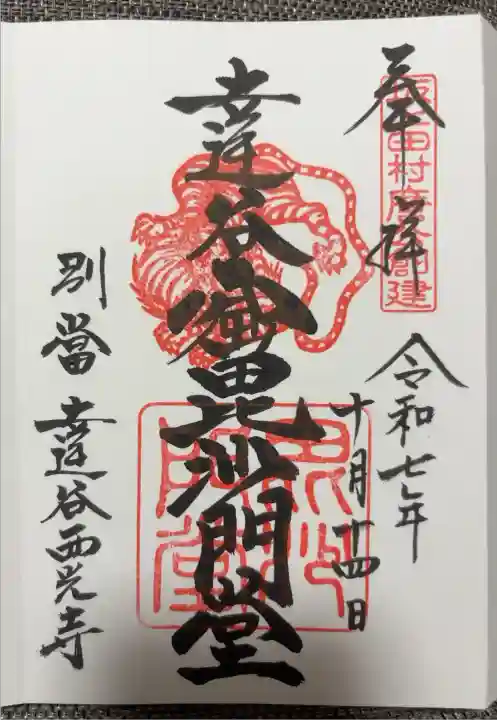 奉拝
坂上田村麿公創建
令和七年
十月廿四日
達谷窟毘沙門堂
毘沙門堂
別當 達谷西光寺